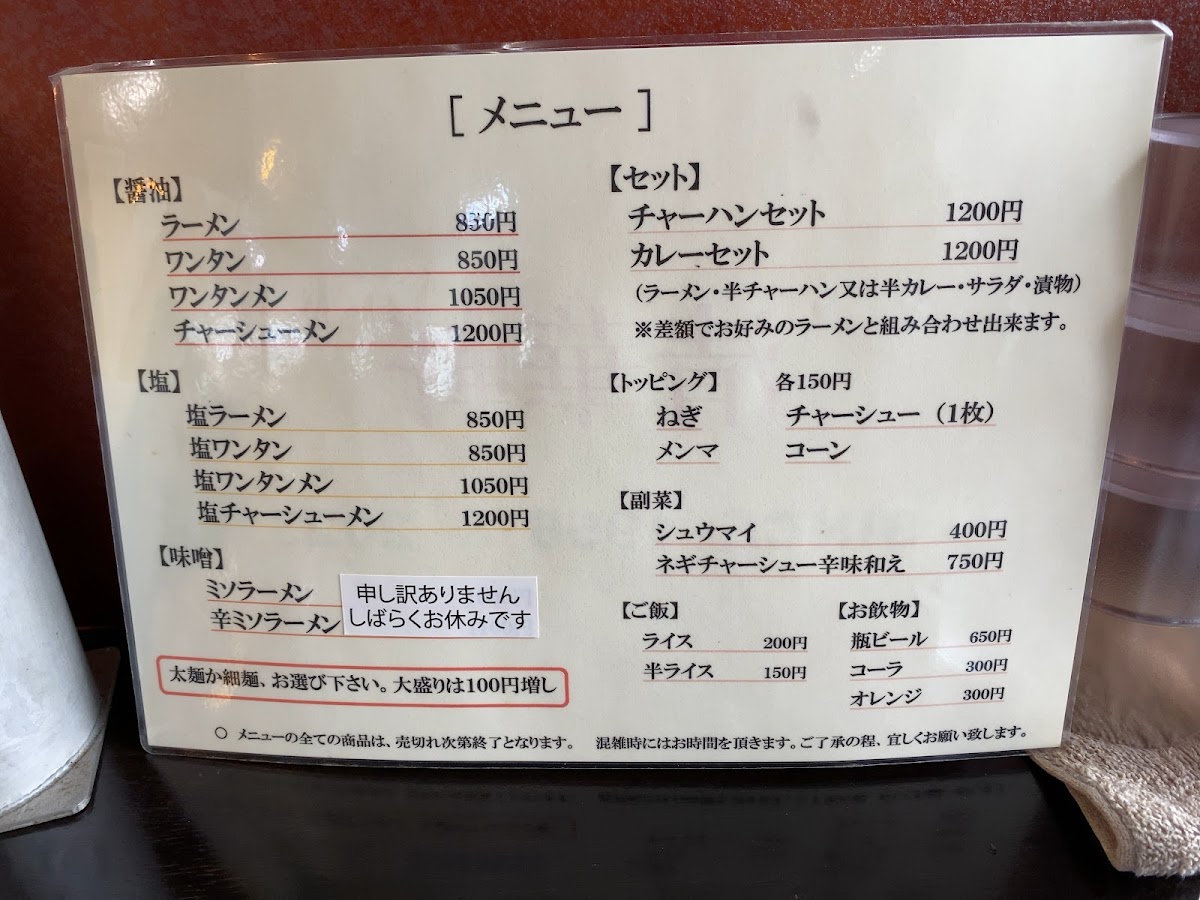 [ メニュー ]
【醤油】
ラーメン 850円
ワンタン 850円
ワンタンメン 1050円
チャーシューメン 1200円
【塩】
塩ラーメン 850円
塩ワンタン 850円
塩ワンタンメン 1050円
塩チャーシューメン 1200円
【味噌】
ミソラーメン
辛ミソラーメン
申し訳ありません
しばらくお休みです
太麺か細麺、お選び下さい。大盛りは100円増し
【セット】
チャーハンセット 1200円
カレーセット 1200円
（ラーメン・半チャーハン又は半カレー・サラダ・漬物）
※差額でお好みのラーメンと組み合わせ出来ます。
【トッピング】 各150円
ねぎ チャーシュー（1枚）
メンマ コーン
【副菜】
シュウマイ 400円
ネギチャーシュー辛味和え 750円
【ご飯】
ライス 200円
半ライス 150円
【お飲物】
瓶ビール 650円
コーラ 300円
オレンジ 300円
○ メニューの全ての商品は、売切れ次第終了となります。 混雑時にはお時間を頂きます。ご了承の程、宜しくお願い致します。